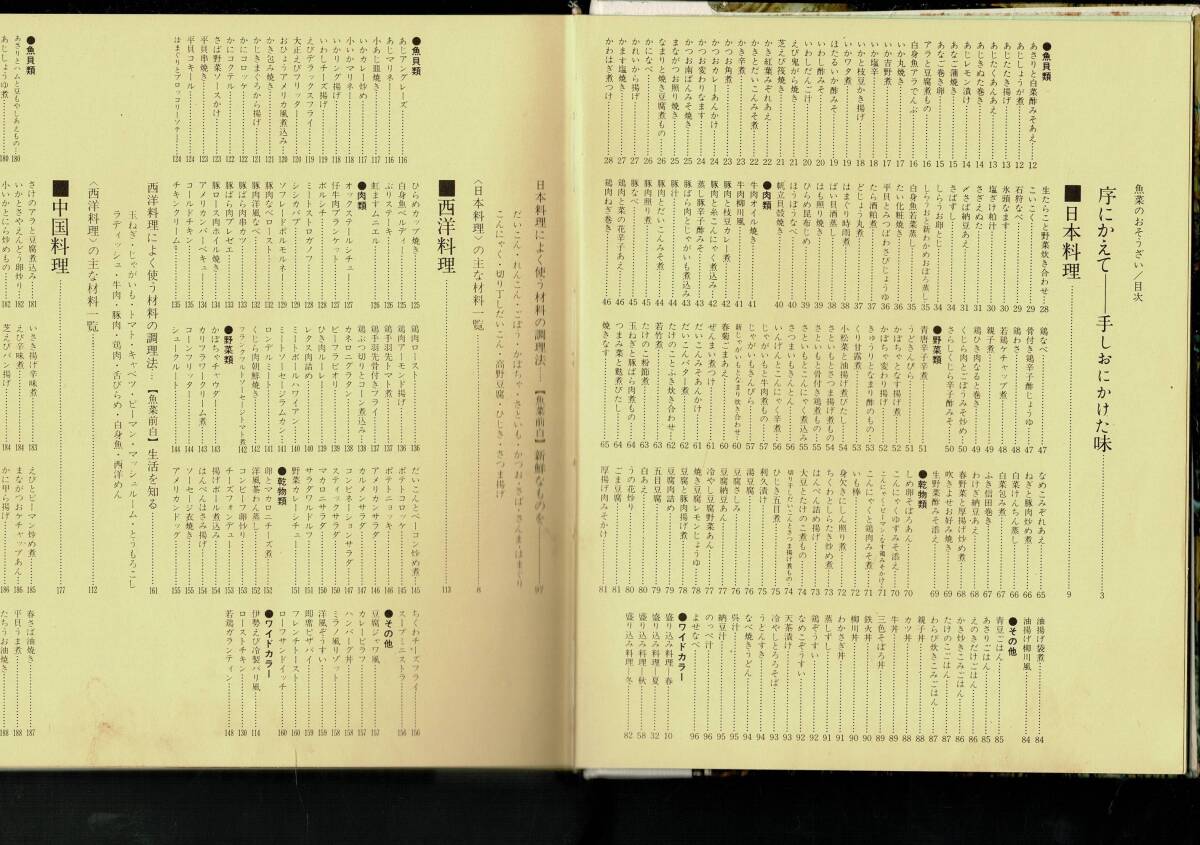 魚菜のおそうざい/目次
序にかえて——手しおにかけた味 3
■日本料理 9
●魚貝類
あさりと白菜酢みそあえ 12
あじしょうが煮 12
あじたたき揚げ 13
あじたくあんあえ 13
あじきぬた巻き 14
あじレモン漬け 14
あなご蒲焼き 15
あなご巻き卵 15
アラと豆腐煮もの 16
白身魚アラでんぶ 16
いか丸焼き 17
いか吉野煮 17
いか塩辛 18
いかと枝豆かき揚げ 18
いかワタ煮 19
ほたるいか酢みそ 19
いわし酢みそ 20
いわしだんご汁 20
えび鬼がら焼き 21
芝えび筏焼き 21
かき紅葉みぞれあえ 22
かきとだいこんみそ煮 22
かき辛煮 22
かつお角煮 23
かつおカレーあんかけ 23
かつお変わりなます 24
かつお南ばんみそ焼き 24
まながつお照り焼き 25
なまりと焼き豆腐煮もの 26
かになべ 26
かれいから揚げ 27
かます塩焼き 27
かわはぎ煮つけ 28
生たらこと野菜炊き合わせ 28
こいこく 29
石狩なべ 29
氷頭なます 30
塩ざけ粕汁 30
さざえぬた 31
〆さば納豆あえ 31
さばずし 34
しらうお卵とじ 34
しらうおと新わかめおぼろ蒸し 35
白身魚若菜蒸し 35
平貝とみつばわさびじょうゆ 36
たい化粧焼き 36
たら酒粕煮 37
どじょう鍋 37
はまぐり時雨煮 37
ばい貝酒蒸し 38
はも照り焼き 38
ひらめ昆布じめ 39
ほうぼうなべ 40
帆立貝殻焼き 40
●肉類
牛肉オイル焼き 41
牛肉柳川風 41
豚肉と枝豆カレー煮 42
豚肉と糸こんにゃく煮込み 42
蒸し豚辛子酢みそ 43
豚ばら肉とじゃがいも煮込み 43
豚汁 44
豚肉とだいこんみそ煮 44
豚肉照り煮 44
豚なべ 45
鶏肉と菜の花辛子あえ 46
鶏肉ねぎ巻き 46
鶏なべ 47
骨付き鶏辛子酢じょうゆ 47
鶏わさ 48
若鶏ケチャップ煮 48
親子煮 49
鶏ひき肉なると巻き 49
くじら肉とごぼうみそ炒め 50
さらしくじら辛子酢みそ 50
●野菜類
青唐辛子辛煮 51
うどきんぴら 51
かぼちゃとなす揚げ煮 52
かぼちゃ変わり揚げ 52
きゅうりとなまり酢のもの 53
くり甘露煮 53
小松菜と油揚げ煮びたし 54
さといもとさつま揚げ煮もの 54
さといもと骨付き鶏煮もの 55
さといもとこんにゃく煮込み 55
さつまいもきんとん 56
いんげんとこんにゃく辛煮 56
じゃがいもと牛肉煮もの 57
じゃがいもきんぴら 57
新じゃがいもとなまり炊き合わせ 60
春菊ごまあえ 60
ぜんまい煮つけ 61
だいこんみそあんかけ 61
だいこんバター煮 62
たけのことふき炊き合わせ 62
若竹煮 63
たけのこ粉節煮 63
玉ねぎと豚ばら肉煮もの 64
つまみ菜と麩煮びたし 64
焼きなす 65
なめこみぞれあえ 65
ねぎと豚肉炒め煮 66
白菜けんちん蒸し 66
白菜包み煮 67
ふき信田巻き 67
わけぎ納豆あえ 68
春野菜と厚揚げ炒め煮 68
吹きよせお好み焼き 69
生野菜酢みそ添え 69
●乾物類
しめ卵そぼろあん 70
こんにゃくゆすみそ添え 70
こんにゃくと鶏肉みそ煮 71
いも棒 72
身欠きにしん照り煮 72
ちくわとしらたき炒め煮 72
はんぺん詰め揚げ 73
大豆とたけのこ煮もの 73
切り干しだいこんとさつま揚げ煮もの 74
ひじき五目煮 74
利久漬け 75
湯豆腐 75
豆腐さしみ 76
豆腐納豆あん 76
冷やし豆腐野菜あん 77
焼き豆腐レモンじょうゆ 78
豆腐と豚肉揚げ煮 79
豆腐肉詰め 79
五目豆腐 80
白あえ 80
うの花炒り 80
ごま豆腐 81
厚揚げ肉みそかけ 81
油揚げ袋煮 84
油揚げ柳川風 84
●その他
青豆ごはん 85
あさりごはん 85
えのきだけごはん 86
かき炒きこみごはん 86
たけのこごはん 87
わらび炊きこみごはん 87
親子丼 88
カツ丼 88
牛丼 89
三色そぼろ丼 89
鉄火丼 90
柳川丼 90
わかさぎ丼 91
蒸しずし 91
鶏ぞうすい 92
なめこぞうすい 92
天茶漬け 93
冷やしとろろそば 93
うどんすき 94
なべ焼きうどん 94
呉汁 95
納豆汁 95
のっぺ汁 96
よせなべ 96
●ワイドカラー
盛り込み料理—春 10
盛り込み料理—夏 32
盛り込み料理—秋 58
盛り込み料理—冬 82
日本料理によく使う材料の調理法…【魚菜前自】新鮮なものを 97
だいこん・れんこん・ごぼう・かぼちゃ・さといも・かつお・さば・さんま・はまぐり
こんにゃく・切り干しだいこん・高野豆腐・ひじき・さつま揚げ
〈日本料理〉の主な材料一覧 8
■西洋料理 113
●魚貝類
あじアングレーズ 116
あじマリネー 116
小あじ重焼き 117
いかカレー炒め 117
小いかマリネー 118
いかリング揚げ 118
いわしチーズ揚げ 119
えびデラックスフライ 119
大正えびフリッター 120
おひょうアメリカ風煮込み 120
かき包み焼き 121
かじきまぐろから揚げ 121
かにコロッケ 122
かにコクテル 122
さば野菜ソースかけ 123
平貝串焼き 123
平貝コキール 124
はまぐりとブロッコリーソテー 124
ひらめカップ焼き 125
白身魚ベルディー 125
ぶりステーキ 126
虹ますムニエル 126
●肉類
オックステールシンチュー 127
仔牛肉ブランケット 127
ボルシチ 128
ミートストロガノフ 128
シシカバブ 129
ソフィードポルモルネー 129
豚肉なべロースト 130
豚肉洋風なべ 131
豚ばら肉串カツ 132
豚ばら肉ブレゼエ 133
豚ロース肉ホイル焼き 134
アメリカンバーベキュー 134
コールドチキン 135
チキンクリーム 135
鶏肉ロースト 136
鶏肉アーモンド揚げ 136
鶏手羽先トマト煮 137
鶏手羽先骨付きフライ 137
鶏ぶつ切りとコーン煮込み 138
カネロニグラタン 138
ビーフピビオリ 139
ひき肉ルーレ 139
レタス肉詰め 140
ミートボールハワイアン 140
ミートソーセージラムカン 141
ロンデルミート 141
くじら肉朝鮮焼き 142
フランクフルトソーセージトマト煮 142
●野菜類
かぼちゃチャウダ 143
カリフラワークリーム煮 144
コーンフリッター 144
シュークルート 144
だいこんとベーコン炒め煮 145
ポテトコロッケ 145
ポテトニョッキー 146
アメリカンサラダ 146
カルメンサラダ 147
コンビネーションサラダ 147
スタティッフサラダ 150
マカロニサラダ 150
サラダワルドルフ 151
野菜カレーシチュー 151
●乾物類
卵とマカロニチーズ煮 152
洋風茶わん蒸し 152
コンビーフ卵炒り 153
チーズフォンデュー 153
揚げボール煮込み 154
はんぺんはさみ揚げ 154
ソーセージ衣焼き 155
アメリカンドッグ 155
ちくわチーズフライ 156
スープミニストラ 156
●その他
豆腐ジャワ風 157
カレーピラフ 157
ハンバーグ丼 158
ミラノ風リゾット 158
洋風ぞうすい 159
即席ピザパイ 159
フレンチトースト 160
ローフサンドイッチ 160
●ワイドカラー
伊勢えび冷製パリ風 114
ローストチキン 130
若鶏ガランティン 148
西洋料理によく使う材料の調理法…【魚菜前自】生活を知る 161
玉ねぎ・じゃがいも・トマト・キャベツ・ピーマン・マッシュルーム・とうもろこし
ラディッシュ・牛肉・豚肉・鶏肉・舌びらめ・白身魚・西洋めん
〈西洋料理〉の主な材料一覧 112
■中国料理 177
●魚貝類
あさりとハムと豆もやしあえもの 180
あじしょうゆ煮 180
さけのアラと豆腐煮込み 181
いかとさやえんどう卵炒り 182
小いかとにら炒めもの 182
いさき揚げ辛味煮 183
えび辛味煮 184
芝えびパン揚げ 184
えびとピーマン炒め煮 185
まながつおケチャップあん 186
かに甲ら揚げ 186
春さば油焼き 187
平貝うま煮 188
たちうお油焼き 188